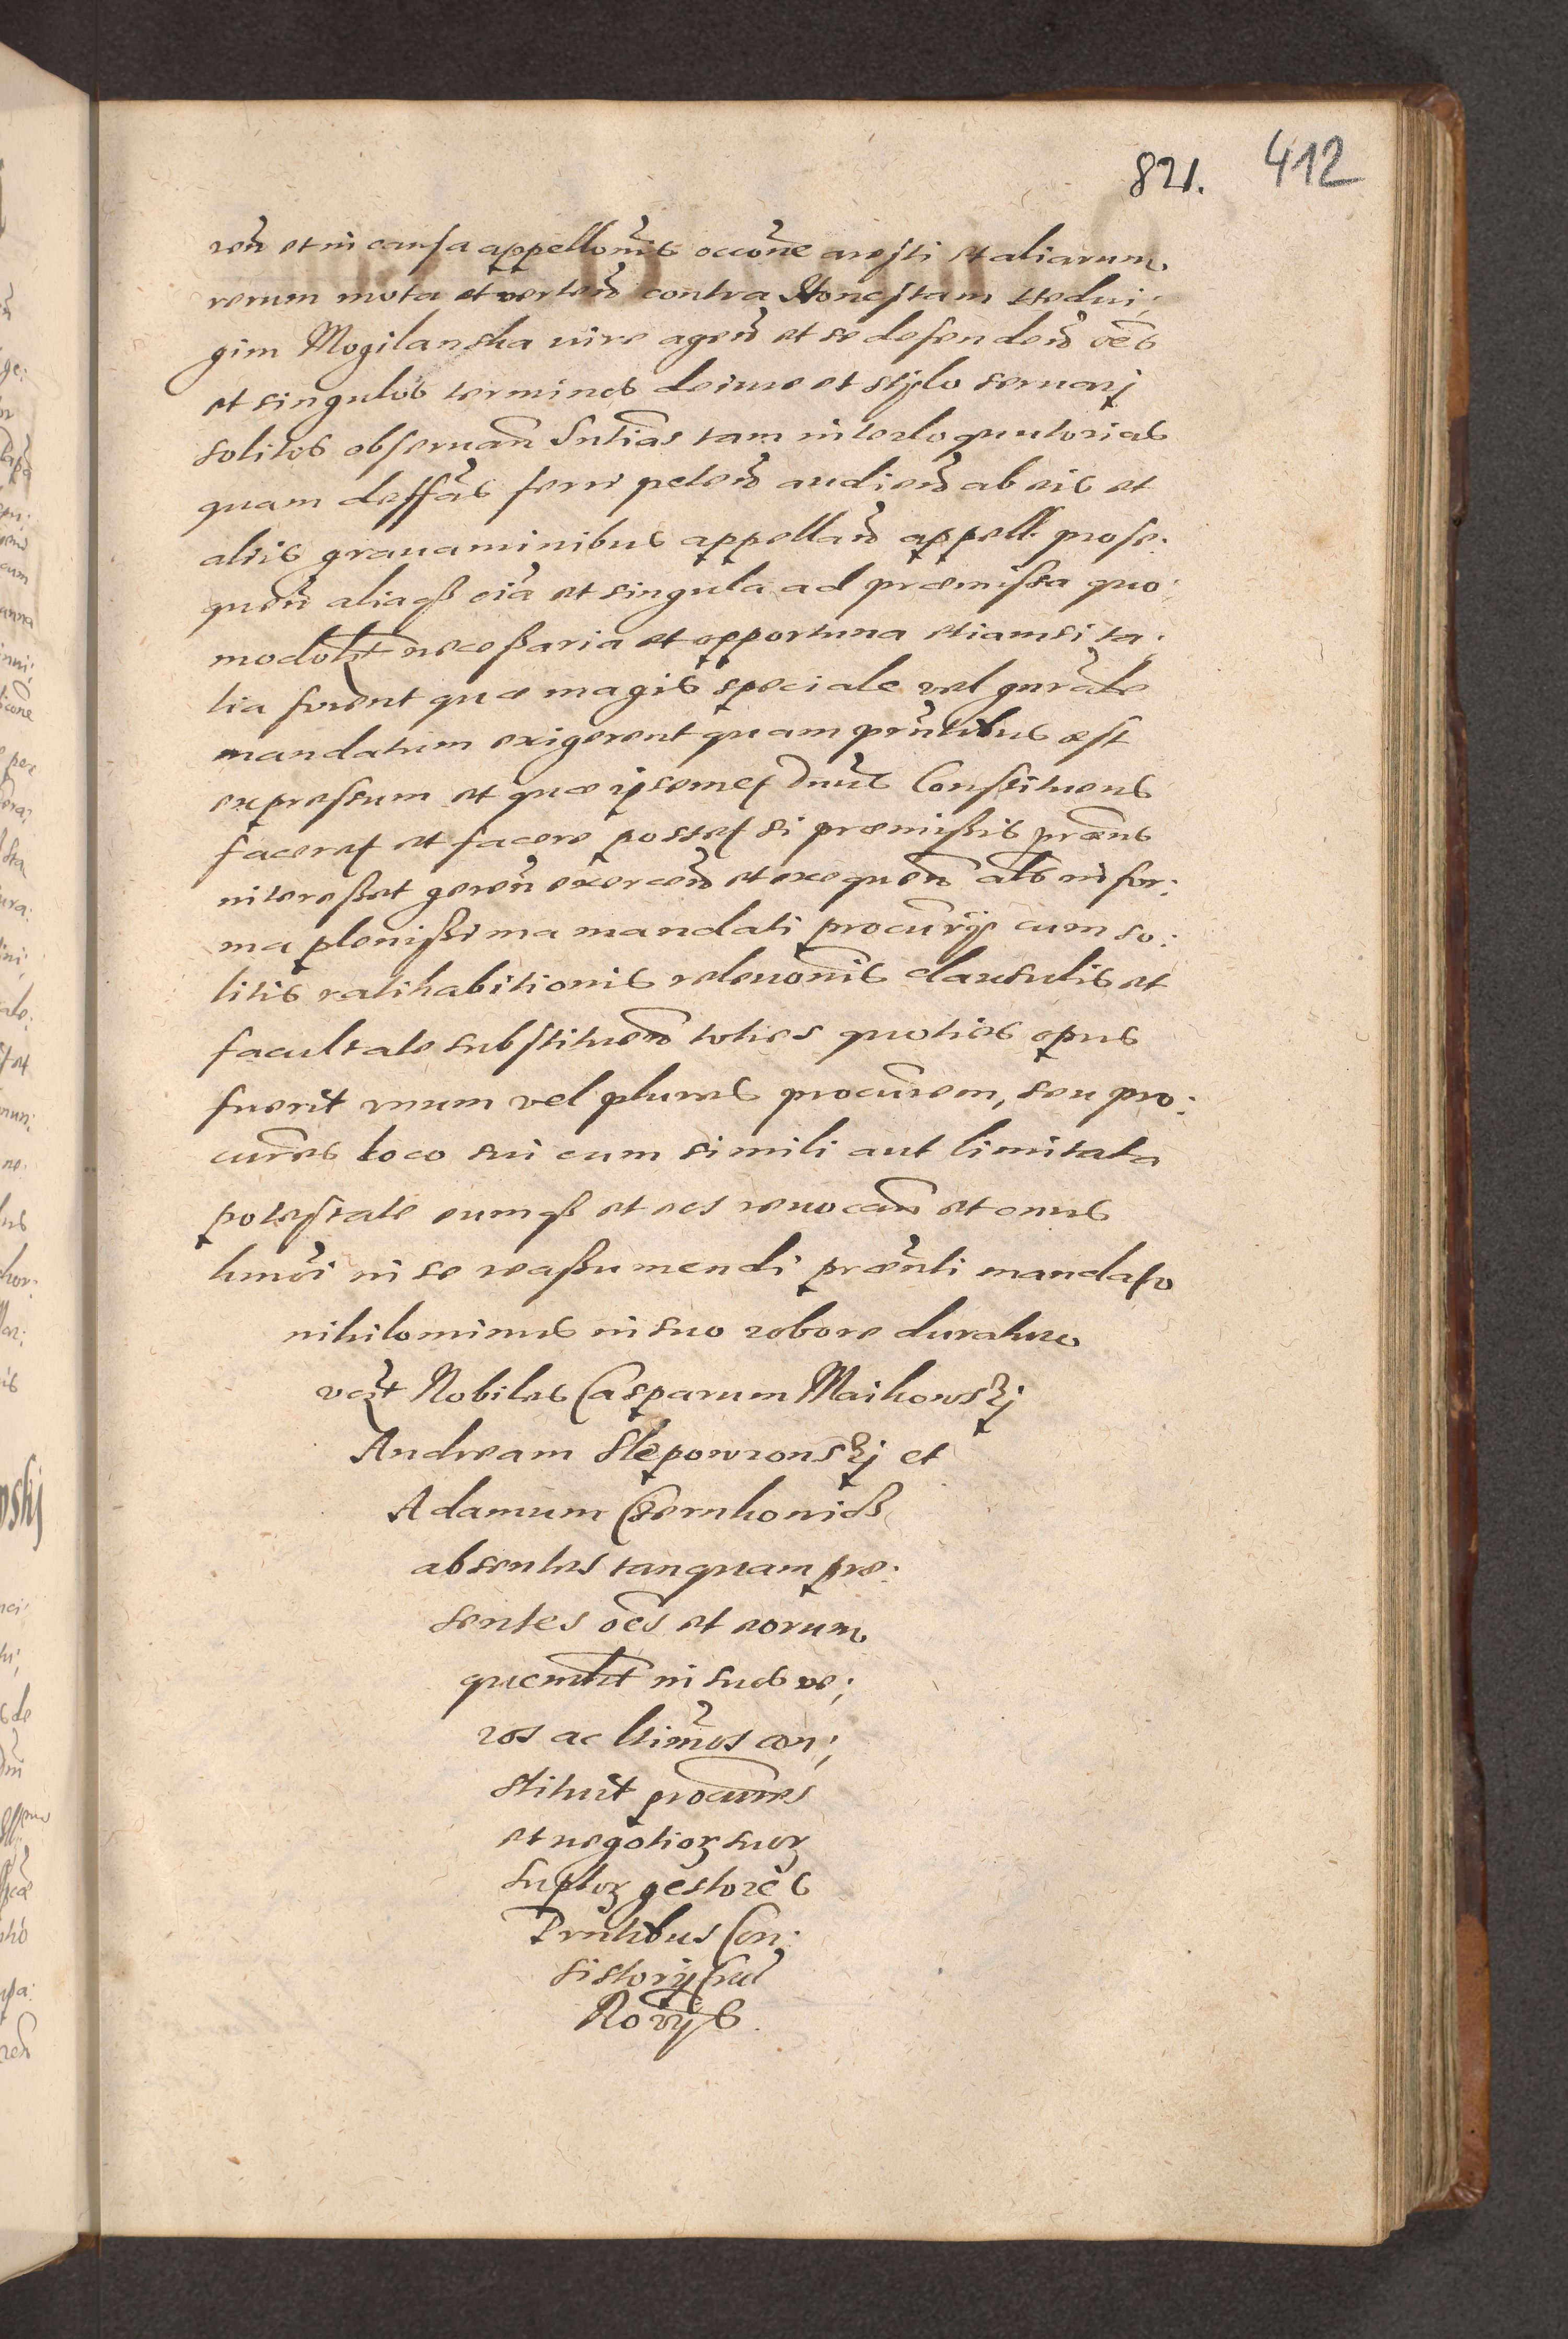 821. 412
ren̄ et in causa appellonīs occone aresti et aliarum
rerum mota et verten̄ contra Honestam Hedui;
gim Mogilanska iure agen̄ et se defenden̄ oēs
et singulos terminos de iure et stylo seruarj
solitos obseruan̄ Sntias tam interloquutorias
quam deffās ferri peten̄ audien̄ ab eis et
aliis grauaminibus appellan̄ appell. prose:
quen̄ aliaqß oīa et singula ad præmissa quo:
modolt necessaria et opportuna etiamsi ta:
lia forent quæ magis speciale vel gnrale
mandatum exigerent quam prntibus est
expressum et quæ ipsemet Dnus Constituens
faceret et facere posset si præmissis præns
interesset geren̄ exercen̄ et exequen̄ als in for:
ma plenissima mandati procurrijs cum so:
litis ratihabitionis releuonis clausulis et
facultate substituen̄ toties quoties opus
fuerit vnum vel plures procurem, seu pro:
cures loco sui cum simili aut limitata
potestate eumqß et eos reuocan̄ et onus
hmōi in se reassumendi prænti mandato
nihilominus in suo robore duraturo
vczt Nobiles Casparum Maikowskj
Andream Slepowronskj et
Adamum Czernkowicz
absentes tanquam præ:
sentes oēs et eorum
quemlt in suos ve;
ros ac ltimos con;
stituit procures
et negotioꝝ suoꝝ
suptoꝝ gestores
Prntibus Con:
sistorij Crac
Norijs.